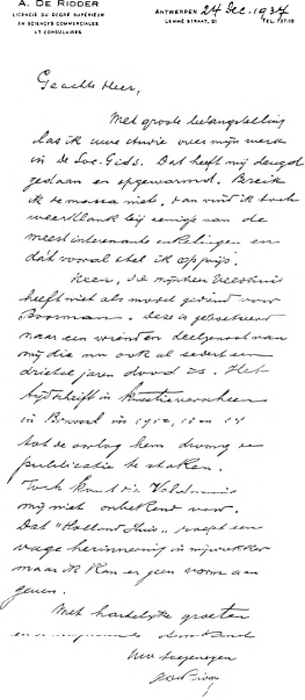 A. DE RIDDER
LICENCIÉ DU DEGRÉ SUPÉRIEUR
EN SCIENCES COMMERCIALES
ET CONSULAIRES
ANTWERPEN 24 Dec. 1937
STRAAT, 21 TEL.
Geachte Heer,
Met groote belangstelling
las ik uwe studie over mijn werk
in de Soc. Gids. Dat heeft mij deugd
gedaan en opgewarmd. Bereik
ik de massa niet, dan vind ik toch
weerklank bij eenige van de
meest interessante enkelingen en
dat vooral stel ik op prijs.
Neen,
heeft niet als model gediend voor
Boorman. Deze is geboetseerd
naar een vriend en deelgenoot van
mij die nu ook al sedert een
drietal jaren dood is. Het
tijdschrift in kwestie verscheen
in Brussel in
tot de oorlog hem dwong de
publicatie te staken.
Toch komt die
mij niet onbekend voor.
Dat "Holland Huis" wekt een
vage herinnering in mij wakker
maar ik kan er geen vorm aan
geven.
Met hartelijke groeten
Uw toegenegen